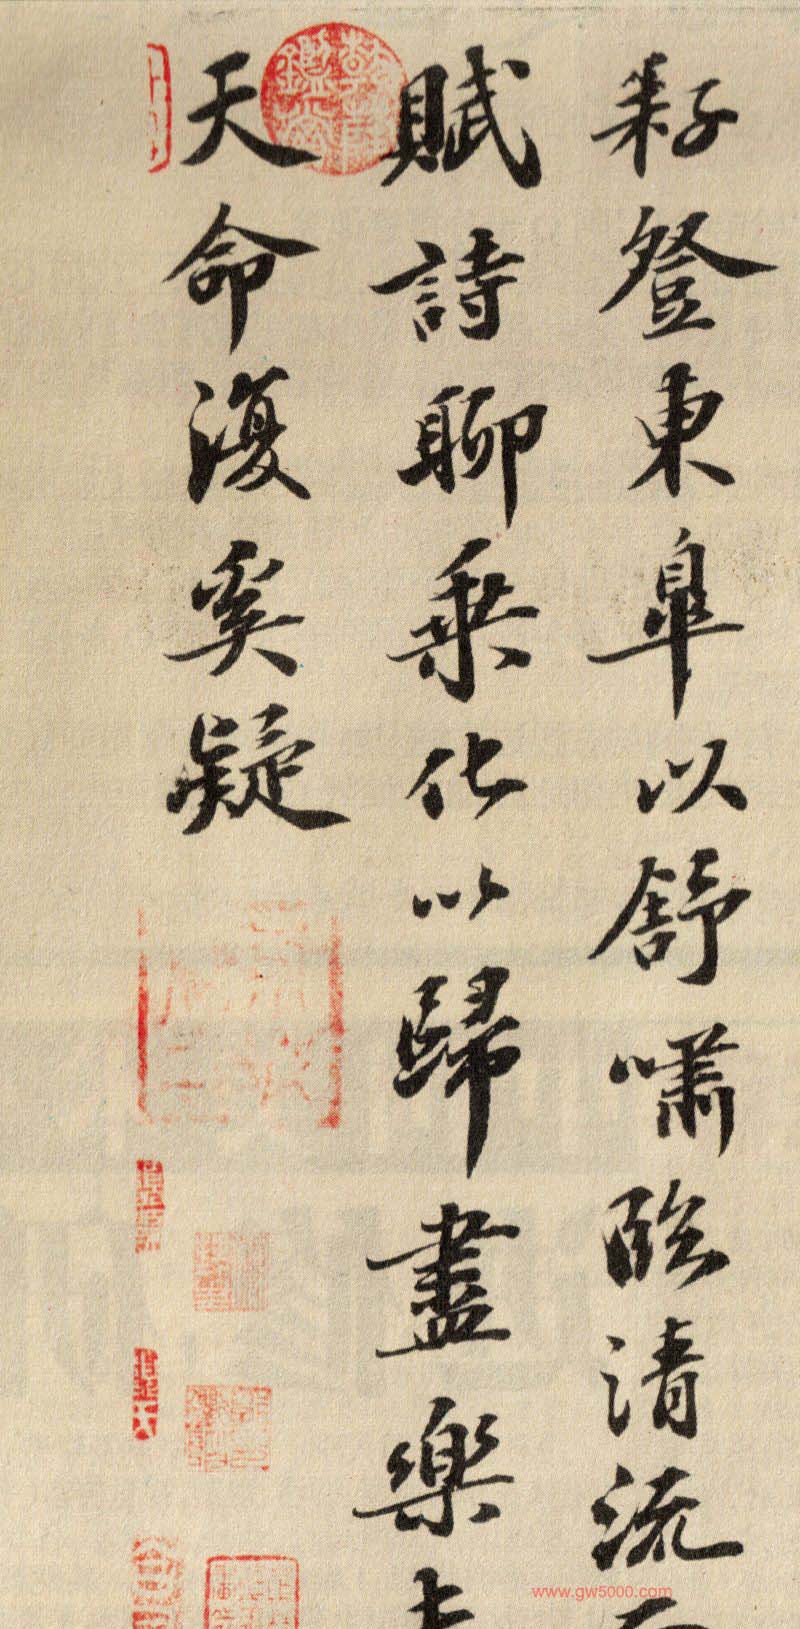 耔登東皐以舒嘯臨清流而
賦詩聊乗化以歸盡樂夫
天命復奚疑
www.gw5000.com